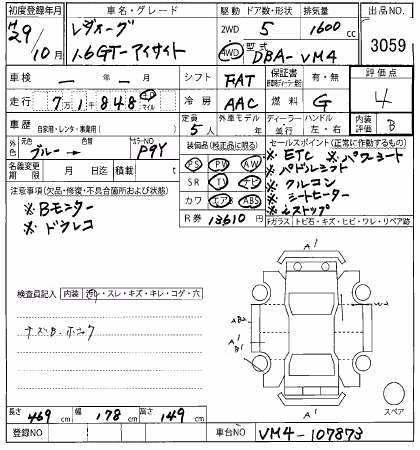 初度登録年月 車名・グレード 駆動 ドア数・形状 排気量 出品NO.
H29年 10月 レヴォーグ 1.6GT-アイサイト 2WD 4WD 5 1600cc 3059
型式 DBA-VM4
車検 ー年ー月 シフト FAT 保証書 有・無 評価点 4
走行 7万1千848 キロ マイル 冷房 AAC 燃料 G
車歴 自家用・レンタ・事業用( ) 定員 5人 外車モデル 年 ディーラー 並行 ハンドル 左・右 内装評価 B
外色 元色 ブルー→ 色替 カラーNO P9Y
装備品(純正品に限る) セールスポイント(正常に作動するもの)
名義変更期限 月 日迄 積載 t
PS PW AW
SR TV ナビ
カワ エアB ABS
R券 13610円
※ETC ※パワーシート
※パドルシフト
※クルコン
※シートヒーター
※iストップ
Fガラス トビ石・キズ・ヒビ・ワレ・リペア跡
注意事項(欠品・修復・不具合箇所および状態)
※Bモニター
※ドラレコ
検査員記入 内装 汚レ・スレ・キズ・キレ・コゲ・穴
A1
A1
B1
A1
スペア
長さ 469cm 幅 178cm 高さ 149cm
登録NO 車台NO VM4-107873